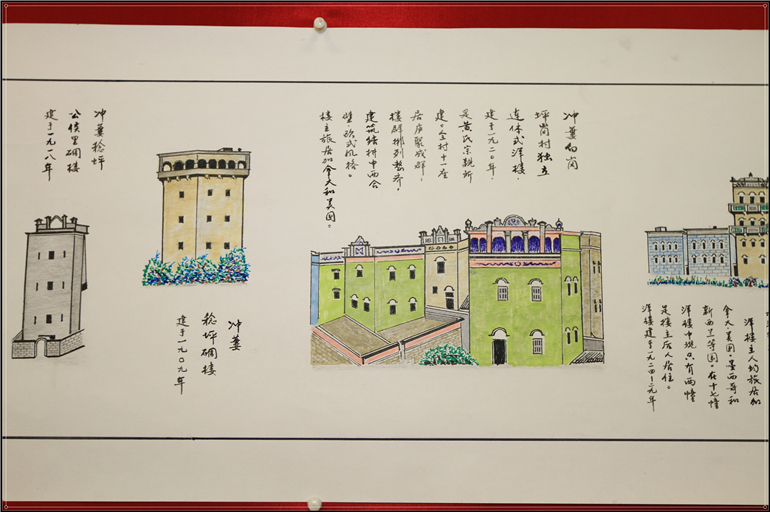 洋楼主人均旅居加
拿大美国,墨西哥和
新西兰等国。在十七幢
洋楼中现只有两幢
是楼主后人居住。
洋楼建于一九二四—二九年
冲蒌白岗
坪岗村独立
连体式洋楼,
建于一九二〇年,
是黄氏宗亲所
建。全村十一座
居庐聚成群,
楼群排列整齐,
建筑结构中西合
璧欧式风格
楼主旅居加拿大和美国。
冲蒌
稔坪碉楼
建于一九〇九年
冲蒌稔坪
公侯里碉楼
建于一九一八年